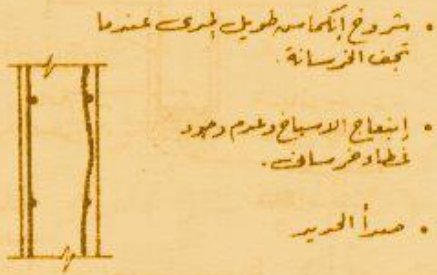 • شروخ إنكماش طويل المدى عندما
تجف الخرسانة.
• إنبعاج الاسياخ وعدم وجود
غطاء خرسانى.
• صدأ الحديد